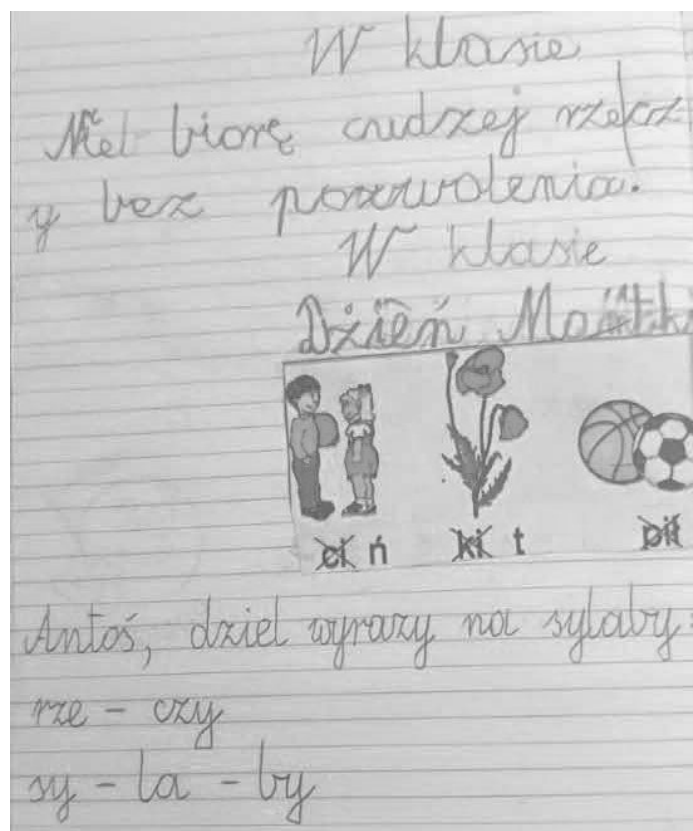 W klasie
Nie biorę cudzej rzecz
y bez pozwolenia.
W klasie
Dzień Matk
ci ń ki t pił
Antoś, dziel wyrazy na sylaby:
rze - czy
sy - la - by